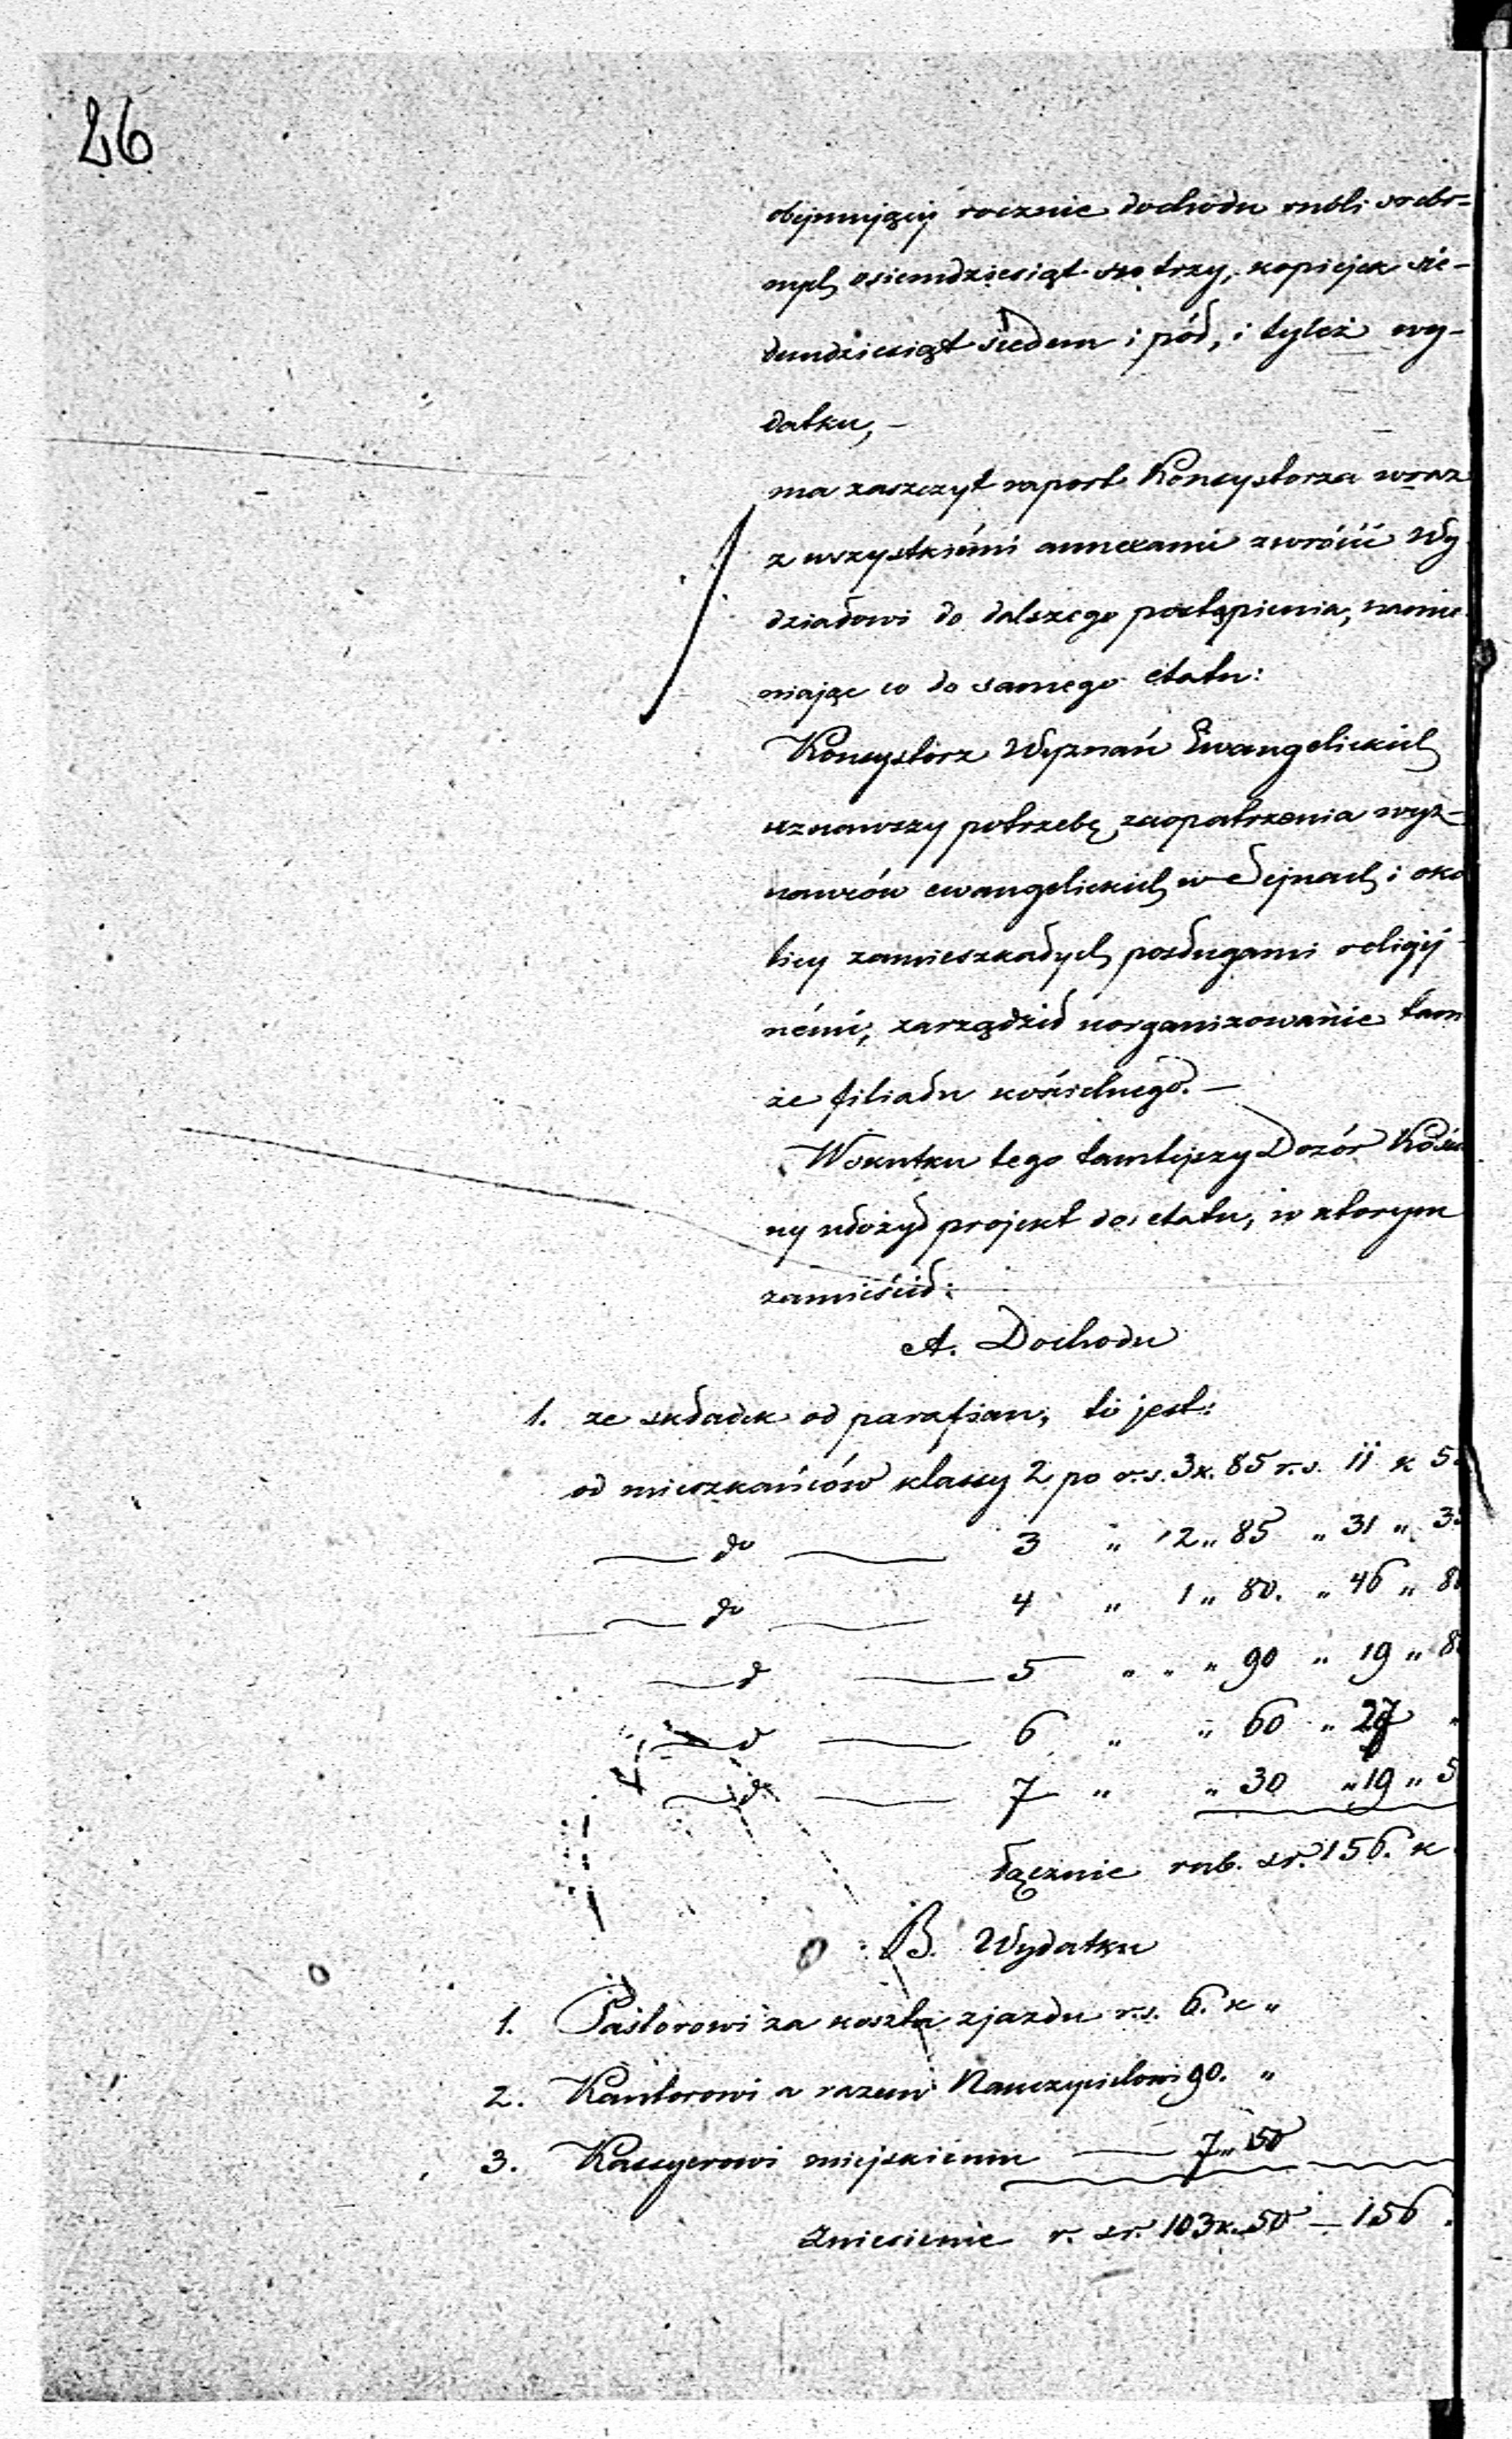 26
obejmujący rocznie dochodu rubli srebr=
nych osiemdziesiąt trzy, kopiejek sie-
demdziesiąt siedem i pół, i tyleż wy-
datku, —
ma zaszczyt raport Konsystorza wraz
z wszystkiémi annexami zwrócić Wy
działowi do dalszego postąpienia, namie
niając co do samego etatu:
Konsystorz Wyznań Ewangelickich
uznawszy potrzebę zaopatrzenia wyz-
nawców ewangelickich w Sejnach i oko
licy zamieszkałych posługami religij-
némi, zarządził uorganizowanie tam
że filiału kościelnego. —
Wskutku tego tamtejszy Dozór Kościel
ny ułożył projekt do etatu, w którym
zamieścił:
A. Dochodu
1. ze składek od parafian, to jest:
od mieszkańców klassy 2 po r.s. 3 k. 85 r.s. 11 k 5
do 3 „ 2 „ 85 „ 31 „ 3
do 4 „ 1 „ 80. „ 46 „ 8
d 5 „ „ „ 90 „ 19 „ 8
d 6 „ „ 60 „ 27 „
d 7 „ „ 30 „ 19 „ 5
łącznie rub. sr. 156. k
B. Wydatku
1. Pastorowi za koszta zjazdu r.s. 6. k „
2. Kantorowi a razem Nauczycielowi 90. „
3. Kassyerowi miejskiemu — 7 „ 50
Zniesienie r. sr. 103 k. 50 — 156.